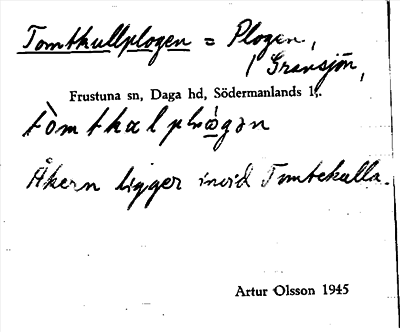 Tomtkullplogen = Plogen,
Gransjön,
Frustuna sn, Daga hd, Södermanlands l.
Åkern ligger invid Tomtekulla.
Artur Olsson 1945